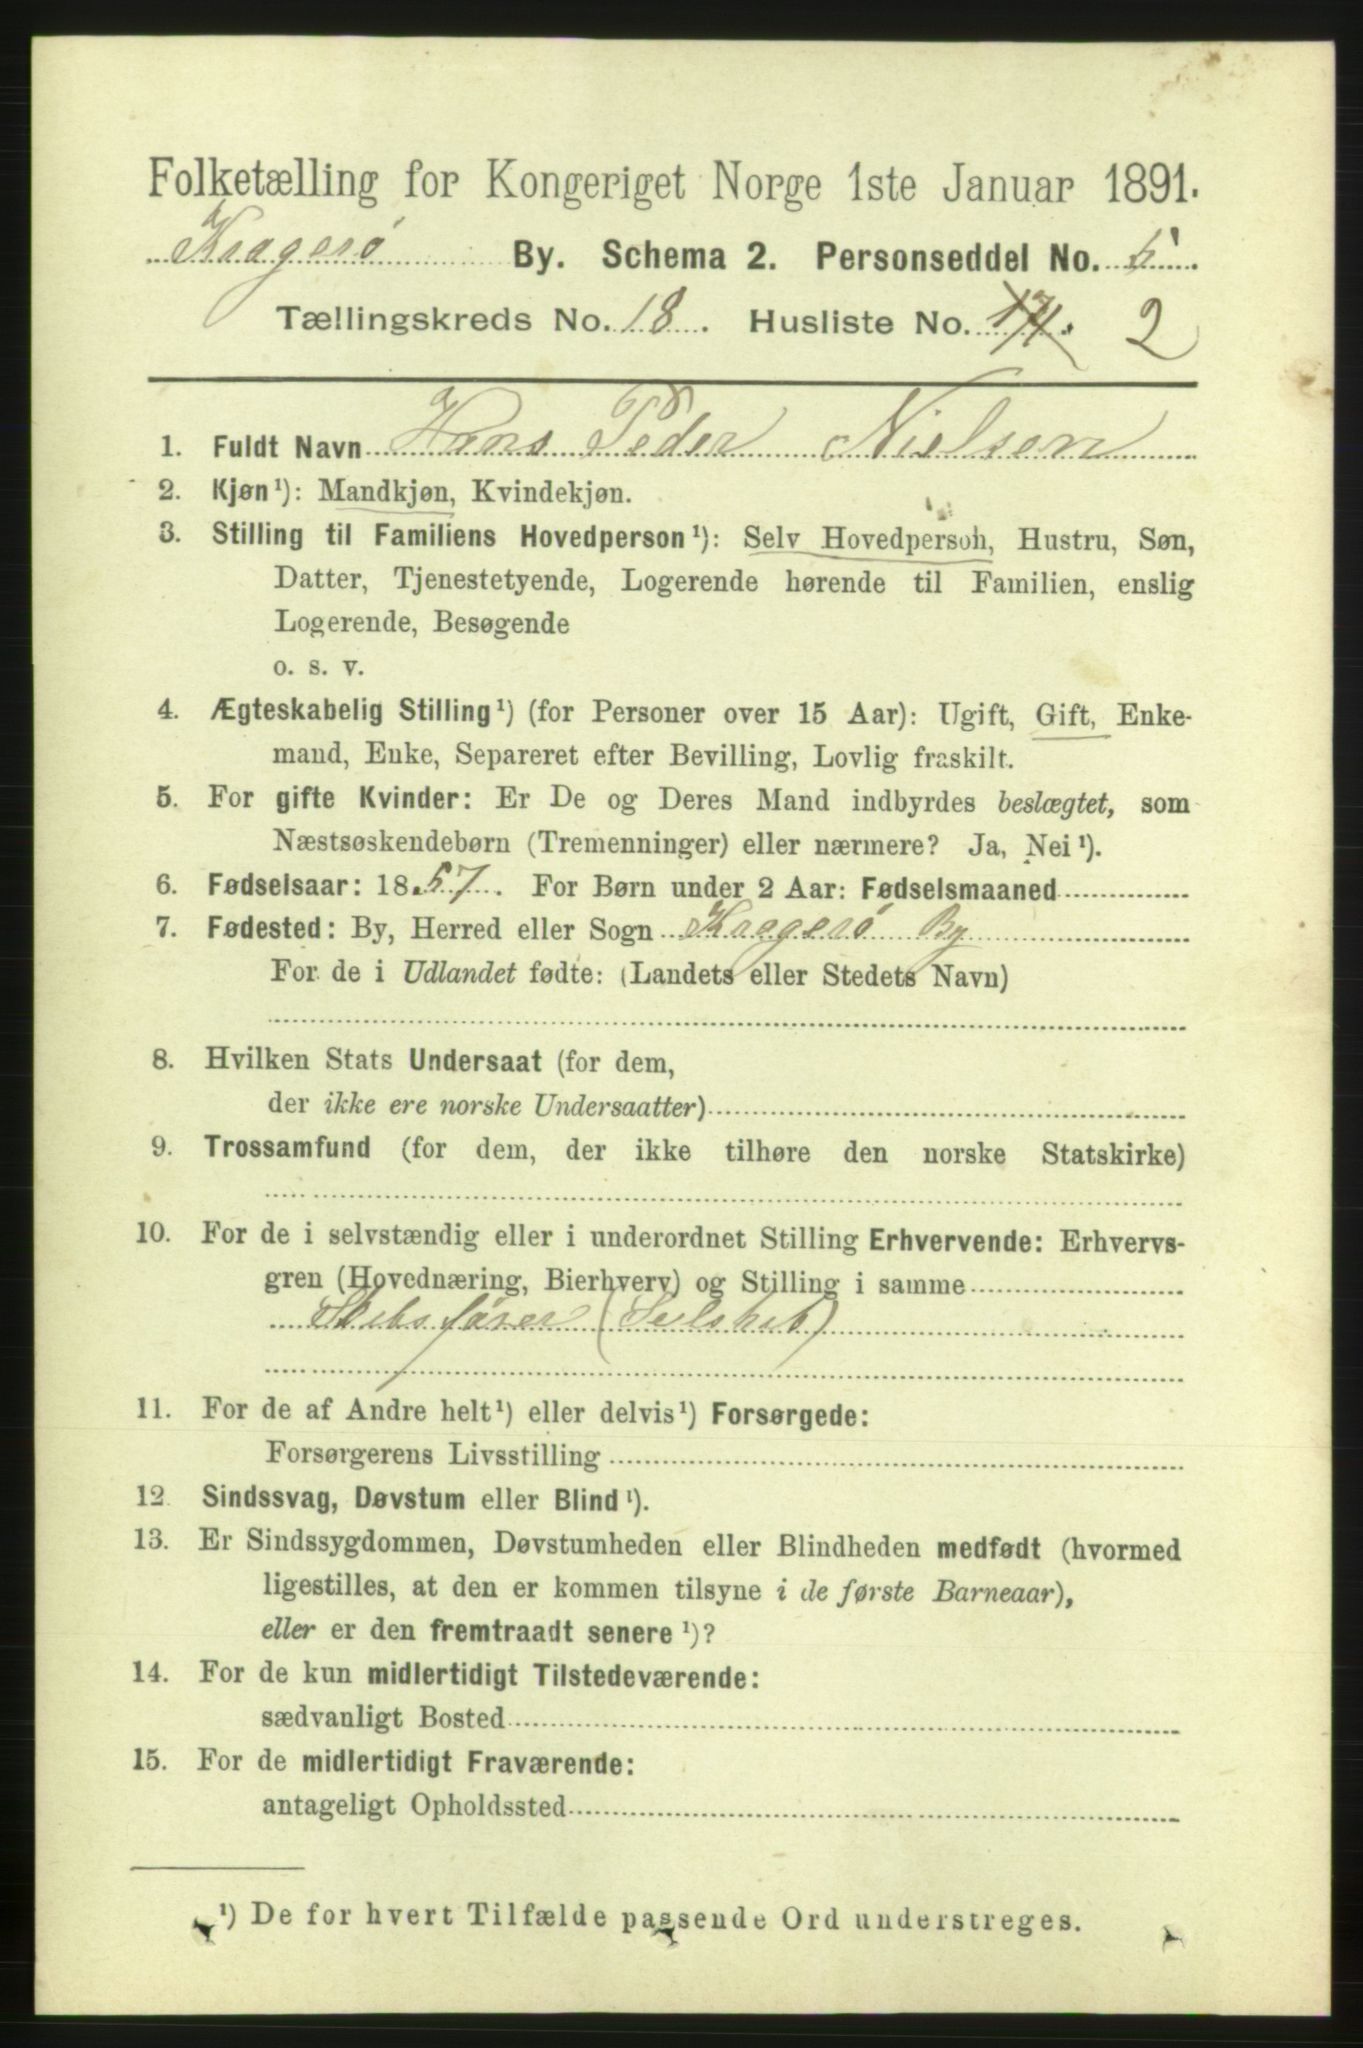 Folketælling for Kongeriget Norge 1ste Januar 1891.
Kragerø By. Schema 2. Personseddel No. 5
Tællingskreds No. 18. Husliste No. 2
1. Fuldt Navn Hans Peder Nielsen
2. Kjøn¹): Mandkjøn, Kvindekjøn.
3. Stilling til Familiens Hovedperson¹): Selv Hovedperson, Hustru, Søn,
Datter, Tjenestetyende, Logerende hørende til Familien, enslig
Logerende, Besøgende
o. s. v.
4. Ægteskabelig Stilling¹) (for Personer over 15 Aar): Ugift, Gift, Enke-
mand, Enke, Separeret efter Bevilling, Lovlig fraskilt.
5. For gifte Kvinder: Er De og Deres Mand indbyrdes beslægtet, som
Næstsøskendebørn (Tremenninger) eller nærmere? Ja, Nei¹).
6. Fødselsaar: 1857. For Børn under 2 Aar: Fødselsmaaned
7. Fødested: By, Herred eller Sogn Kragerø By
For de i Udlandet fødte: (Landets eller Stedets Navn)
8. Hvilken Stats Undersaat (for dem,
der ikke ere norske Undersaatter)
9. Trossamfund (for dem, der ikke tilhøre den norske Statskirke)
10. For de i selvstændig eller i underordnet Stilling Erhvervende: Erhvervs-
gren (Hovednæring, Bierhverv) og Stilling i samme
Skibsfører (Seilskib)
11. For de af Andre helt¹) eller delvis¹) Forsørgede:
Forsørgerens Livsstilling
12. Sindssvag, Døvstum eller Blind¹).
13. Er Sindssygdommen, Døvstumheden eller Blindheden medfødt (hvormed
ligestilles, at den er kommen tilsyne i de første Barneaar),
eller er den fremtraadt senere¹)?
14. For de kun midlertidigt Tilstedeværende:
sædvanligt Bosted
15. For de midlertidigt Fraværende:
antageligt Opholdssted
¹) De for hvert Tilfælde passende Ord understreges.